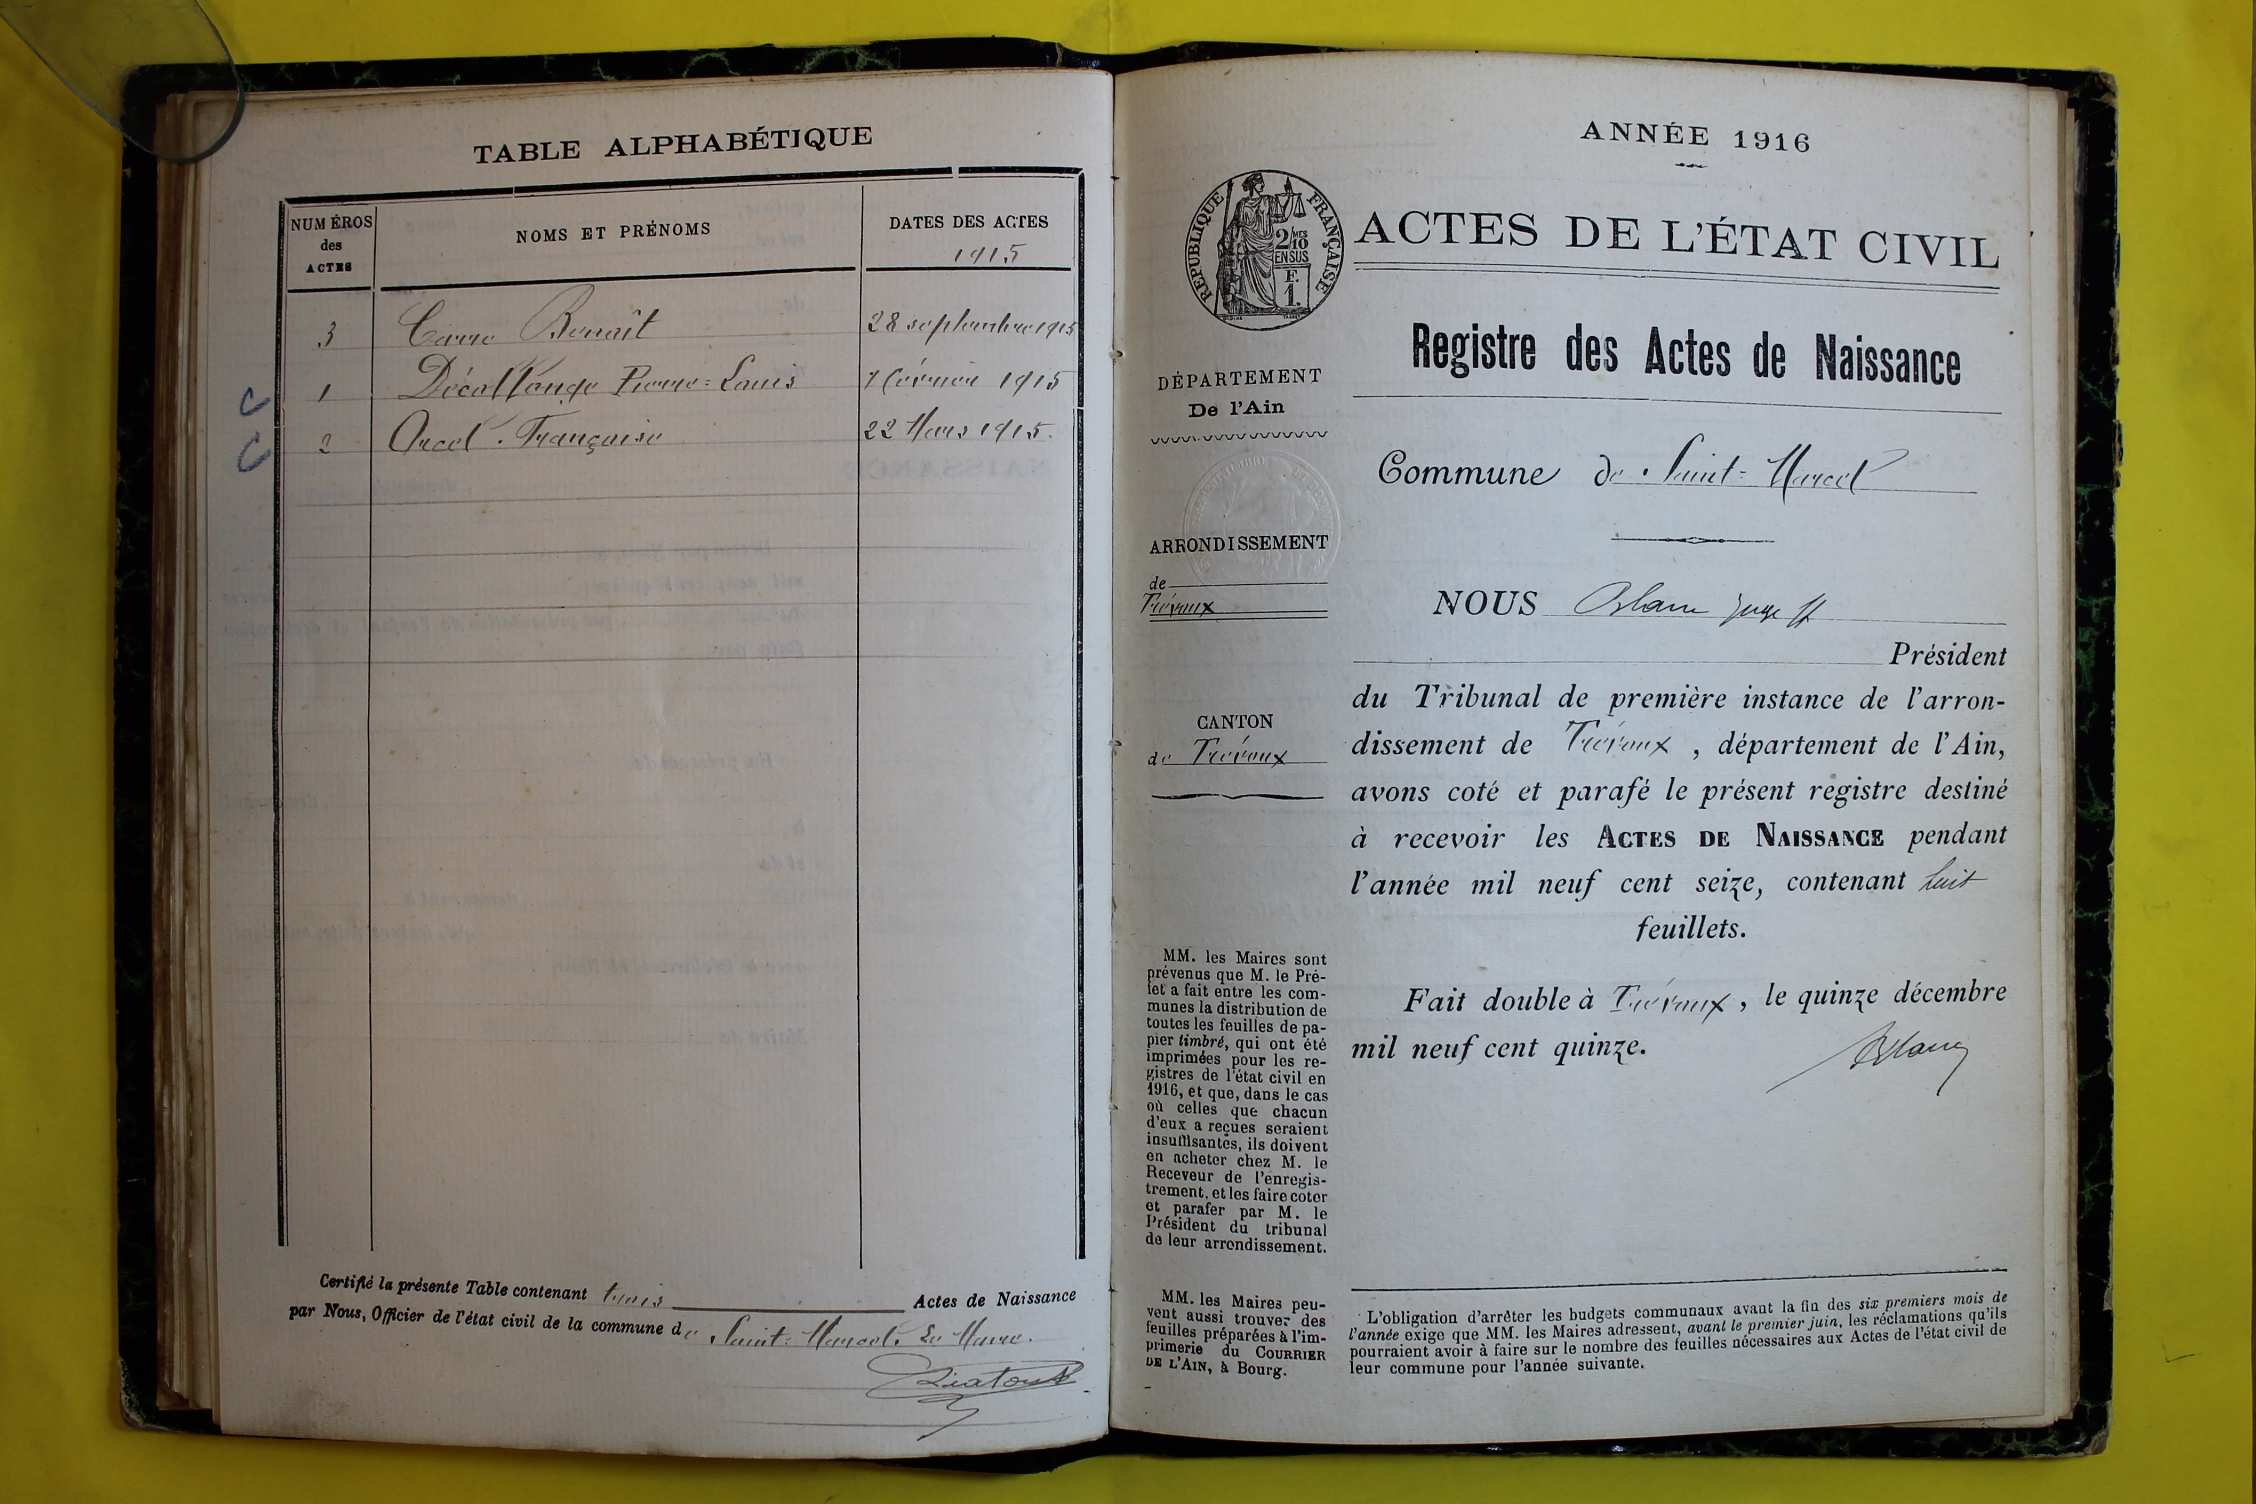 TABLE ALPHABÉTIQUE
NUMÉROS
des
ACTES
NOMS ET PRÉNOMS
DATES DES ACTES
1915
3 Benoît 28 septembre 1915
1 Décollonge Pierre=Louis 7 février 1915
2 Orcel Françoise 22 Mars 1915.
Certifié la présente Table contenant trois Actes de Naissance
par Nous, Officier de l'état civil de la commune de Saint=Marcel. Le Maire.
ANNÉE 1916
RÉPUBLIQUE FRANÇAISE
2/10 MES
EN SUS
F.
1.
ACTES DE L'ÉTAT CIVIL
Registre des Actes de Naissance
DÉPARTEMENT
De l'Ain
Commune de Saint=Marcel
ARRONDISSEMENT
de
Trévoux
CANTON
de Trévoux
NOUS Blanc juge ff
Président
du Tribunal de première instance de l'arron-
dissement de Trévoux, département de l'Ain,
avons coté et parafé le présent registre destiné
à recevoir les ACTES DE NAISSANCE pendant
l'année mil neuf cent seize, contenant huit
feuillets.
Fait double à Trévoux, le quinze décembre
mil neuf cent quinze.
Blanc
MM. les Maires sont
prévenus que M. le Pré-
fet a fait entre les com-
munes la distribution de
toutes les feuilles de pa-
pier timbré, qui ont été
imprimées pour les re-
gistres de l'état civil en
1916, et que, dans le cas
où celles que chacun
d'eux a reçues seraient
insuffisantes, ils doivent
en acheter chez M. le
Receveur de l'enregis-
trement, et les faire coter
et parafer par M. le
Président du tribunal
de leur arrondissement.
MM. les Maires peu-
vent aussi trouver des
feuilles préparées à l'im-
primerie du COURRIER
DE L'AIN, à Bourg.
L'obligation d'arrêter les budgets communaux avant la fin des six premiers mois de
l'année exige que MM. les Maires adressent, avant le premier juin, les réclamations qu'ils
pourraient avoir à faire sur le nombre des feuilles nécessaires aux Actes de l'état civil de
leur commune pour l'année suivante.